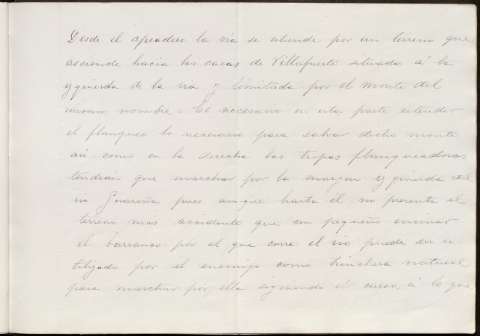 Desde el apeadero la via se estiende por un terreno que
asciende hacia las casas de Villafuerte situada á la
yzquierda de la via y limitada por el monte del
mismo nombre. Es necesario en esta parte estender
el flanqueo lo necesario para salvar dicho monte
asi como en la derecha las tropas flanqueadoras
tendrán que marchar por la margen yzquierda del
rio Guareña pues aunque hasta él no presenta el
terreno mas accidente que un pequeño
el barranco por el que corre el rio puede ser u-
tilizado por el enemigo como trinchera natural
para marchar por ella siguiendo el curso, á lo que